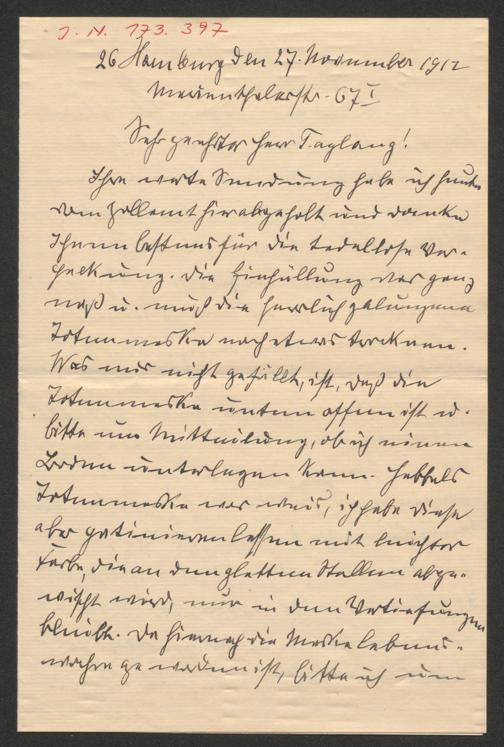 J. N. 173.397
26 Hamburg den 27. November 1912
Marienthalerstr. 67 I
Sehr geehrter Herr Taglang!
Ihre werte Sendung habe ich heute
vom Zollamt hier abgeholt und danke
Ihnen bestens für die tadellose Ver-
packung. Die Einhüllung war ganz
naß u. muß die herrlich gelungene
Totenmaske noch etwas trocknen.
Was mir nicht gefällt, ist, daß die
Totenmaske unten offen ist u.
bitte um Mitteilung, ob ich einen
Boden unterlegen kann. Hebbels
Totenmaske war weiß, ich habe diese
aber patinieren lassen mit leichter
Farbe, die an den glatten Stellen abge-
wischt wird, nur in den Vertiefungen
bleibt. Da hiernach die Maske lebens-
wahre geworden ist, bitte ich um